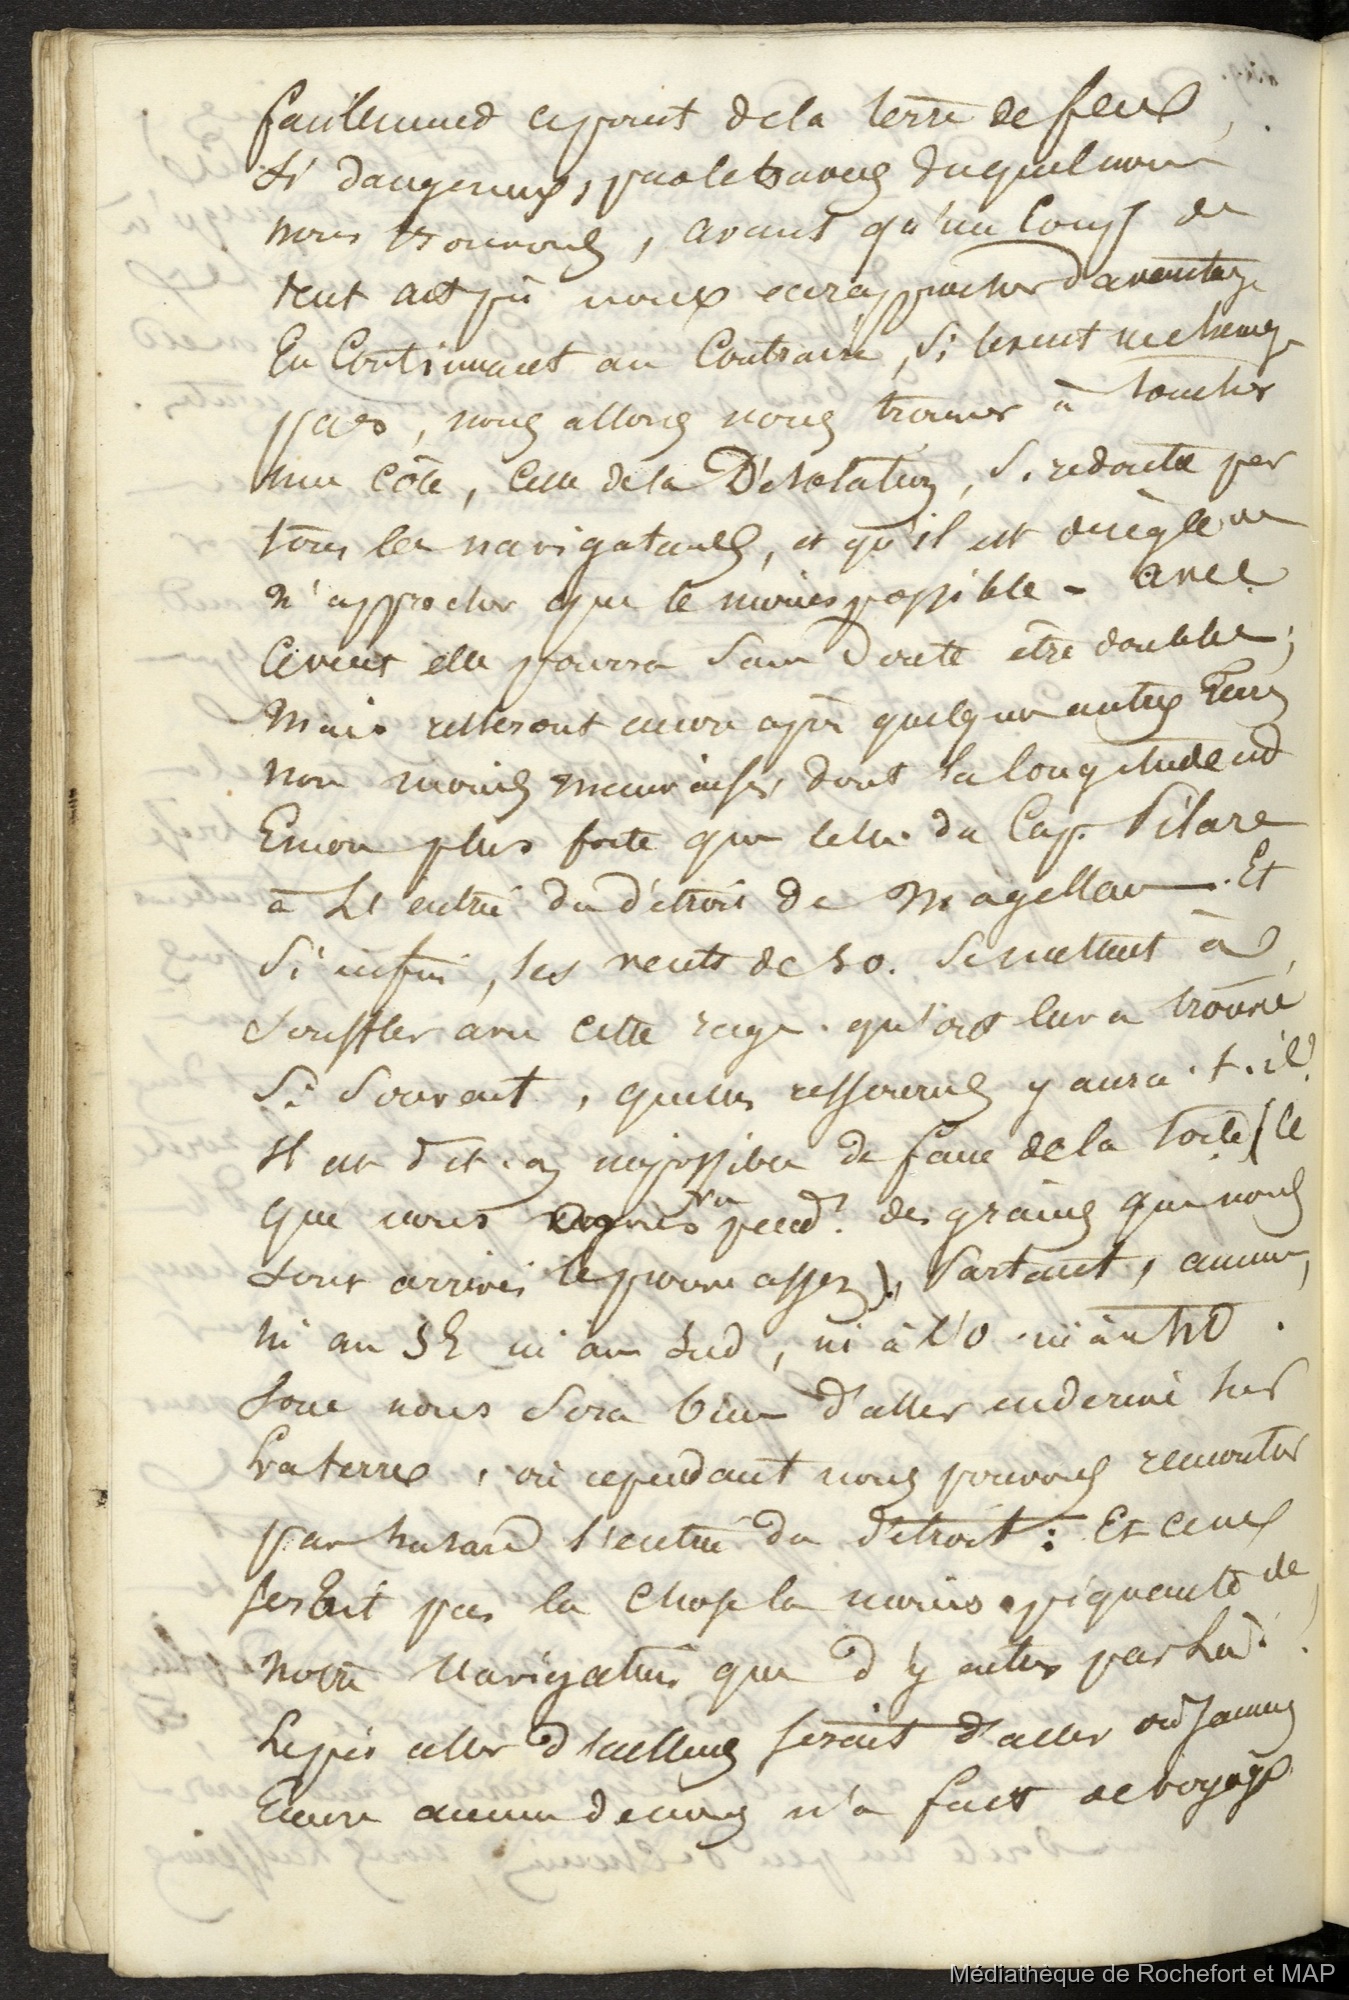 facilement ce point de la terre de feu,
si dangereux, par le travers duquel nous
nous trouvons, avant qu'un coup de
vent ait pu nous en rapprocher davantage
En continuant au contraire, si le vent ne change
pas, nous allons nous trouver à toucher
une côte, celle de la Désolation, si redoutée par
tous les navigateurs, et qu'il est de règle de
n'approcher que le moins possible - avec
ce vent elle pourra sans doute être doublée;
Mais resteront encore après quelques autres terres
non moins mauvaises, dont la longitude est
Encore plus forte que celle du Cap Pilare
à l'entrée du détroit de Magellan. Et
si enfin, les vents de SO. se mettent à
souffler avec cette rage qu'on leur a trouvé
si souvent, quelles ressources y aura-t-il?
Il est dit-on impossible de faire de la toile (ce
que nous pend.t des grains que nous
sont arrivés le prouve assez), Partant, aucune,
ni au SE ni au Sud, ni à l'O ni au NO.
Force nous sera bien d'aller en dérive sur
la terre, où cependant nous pouvons rencontrer
par hasard l'entrée du détroit: Et ce ne
serait pas la chose la moins piquante de
notre navigation que d'y entrer par là.
Le pis aller d'ailleurs serait d'aller où jamais
Encore aucun de nous n'a fait de voyage
Médiathèque de Rochefort et MAP